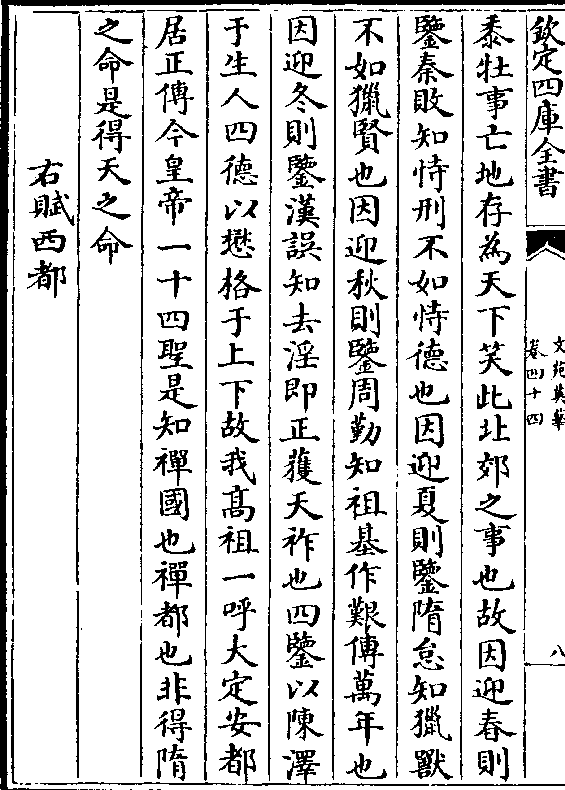 欽定四庫全書
文苑英華
卷四十四
八
黍牡事亡地存為天下笑此北郊之事也故因迎春則
鑒秦敗知恃刑不如恃德也因迎夏則鑒隋怠知獵獸
不如獵賢也因迎秋則鑒周勤知祖基作艱傳萬年也
因迎冬則鑒漢誤知去淫即正獲天祚也四鑒以陳澤
于生人四德以懋格于上下故我髙祖一呼大定安都
居正傳今皇帝一十四聖是知禪國也禪都也非得隋
之命是得天之命
右賦西都